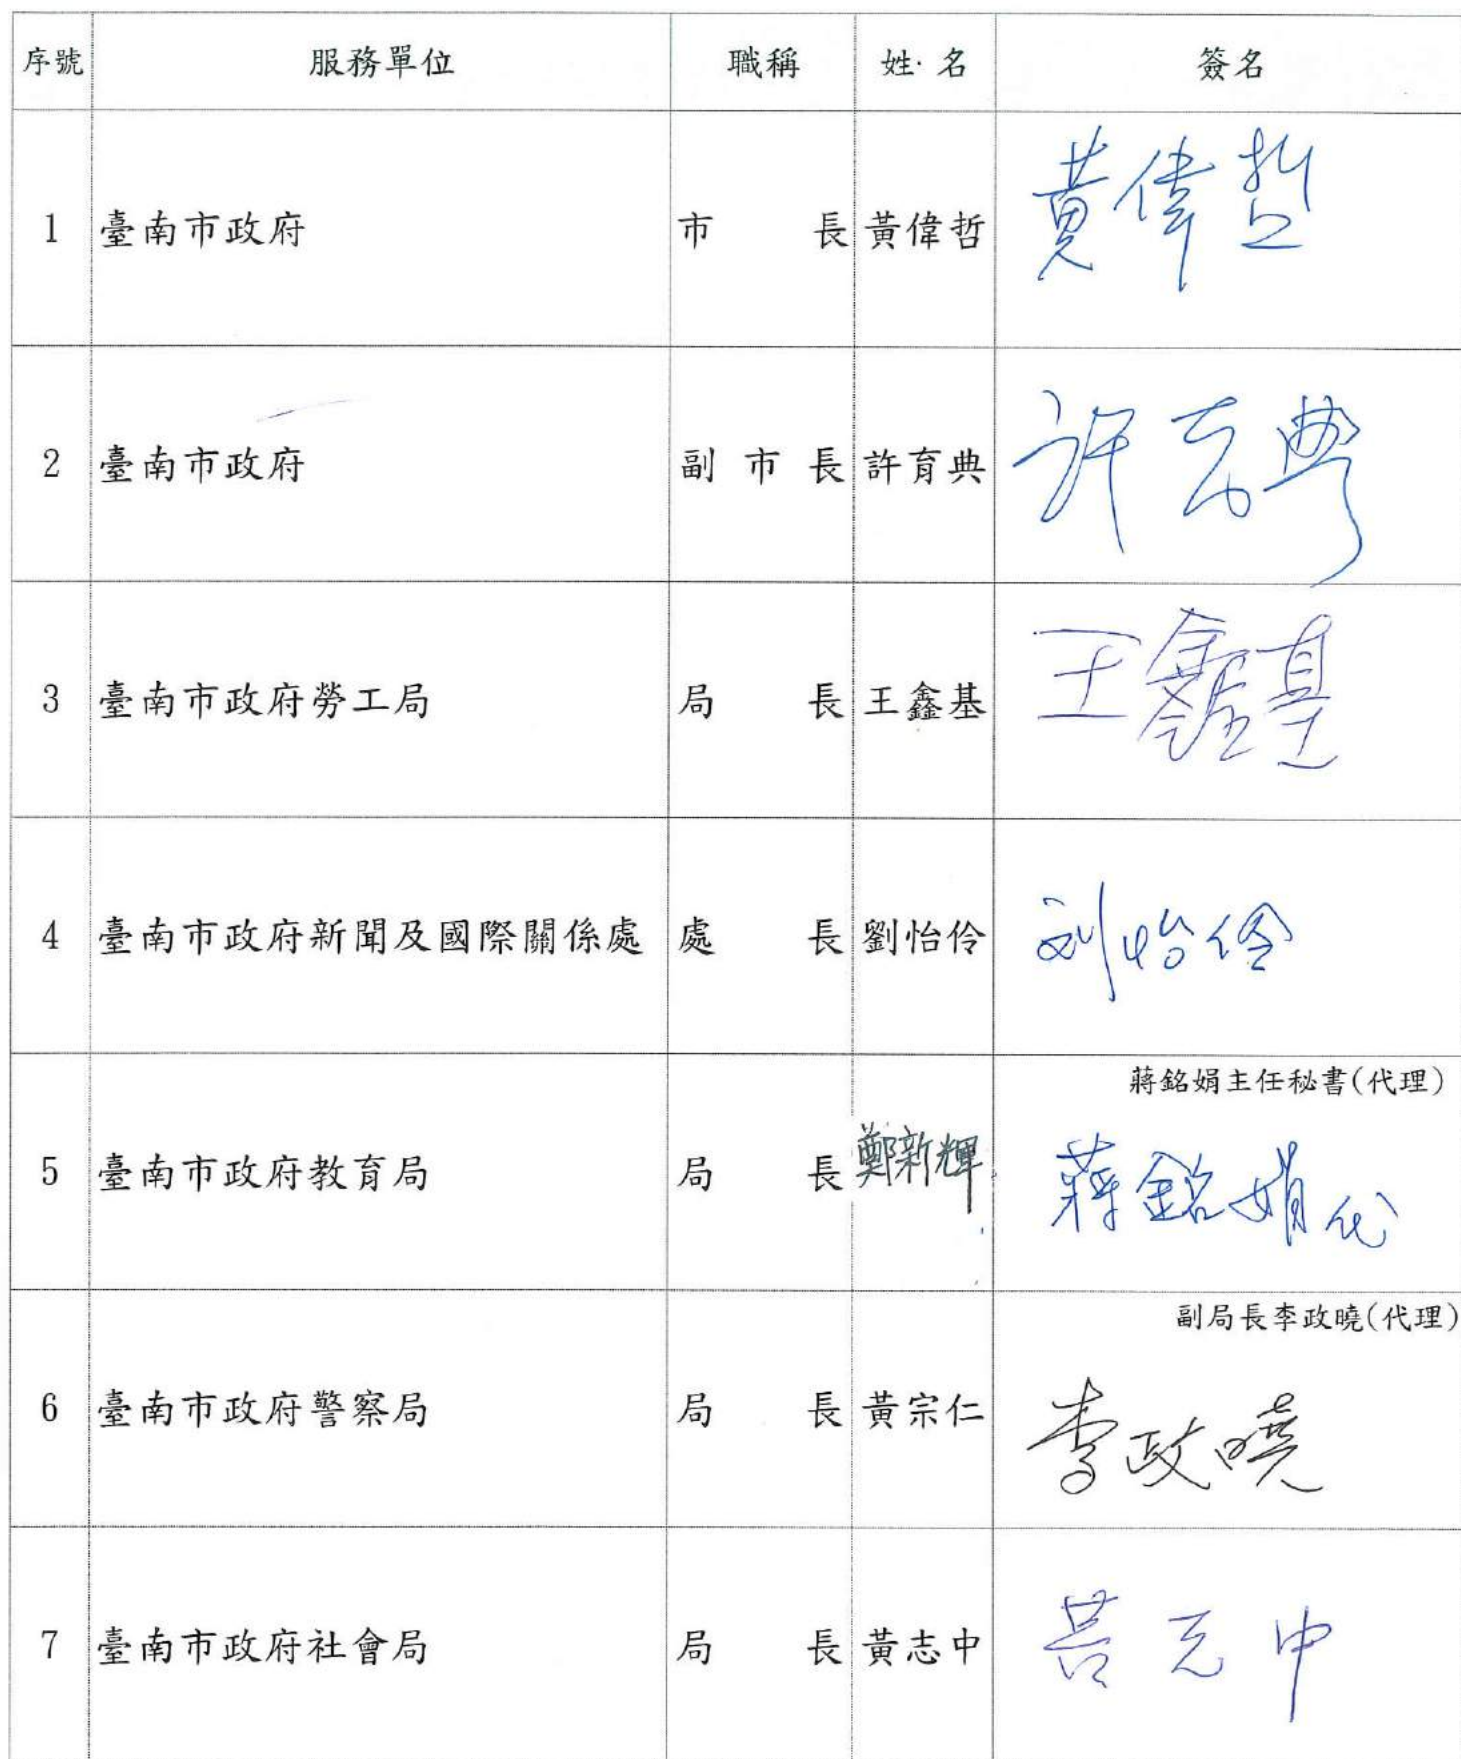 序號 服務單位 職稱 姓名 簽名
1 臺南市政府 市長 黃偉哲 黃偉哲
2 臺南市政府 副市長 許育典 許育典
3 臺南市政府勞工局 局長 王鑫基 王鑫基
4 臺南市政府新聞及國際關係處 處長 劉怡伶 刘怡伶
蔣銘娟主任秘書(代理)
5 臺南市政府教育局 局長 鄭新輝 蔣銘娟代
副局長李政曉(代理)
6 臺南市政府警察局 局長 黃宗仁 李政曉
7 臺南市政府社會局 局長 黃志中 黃志中